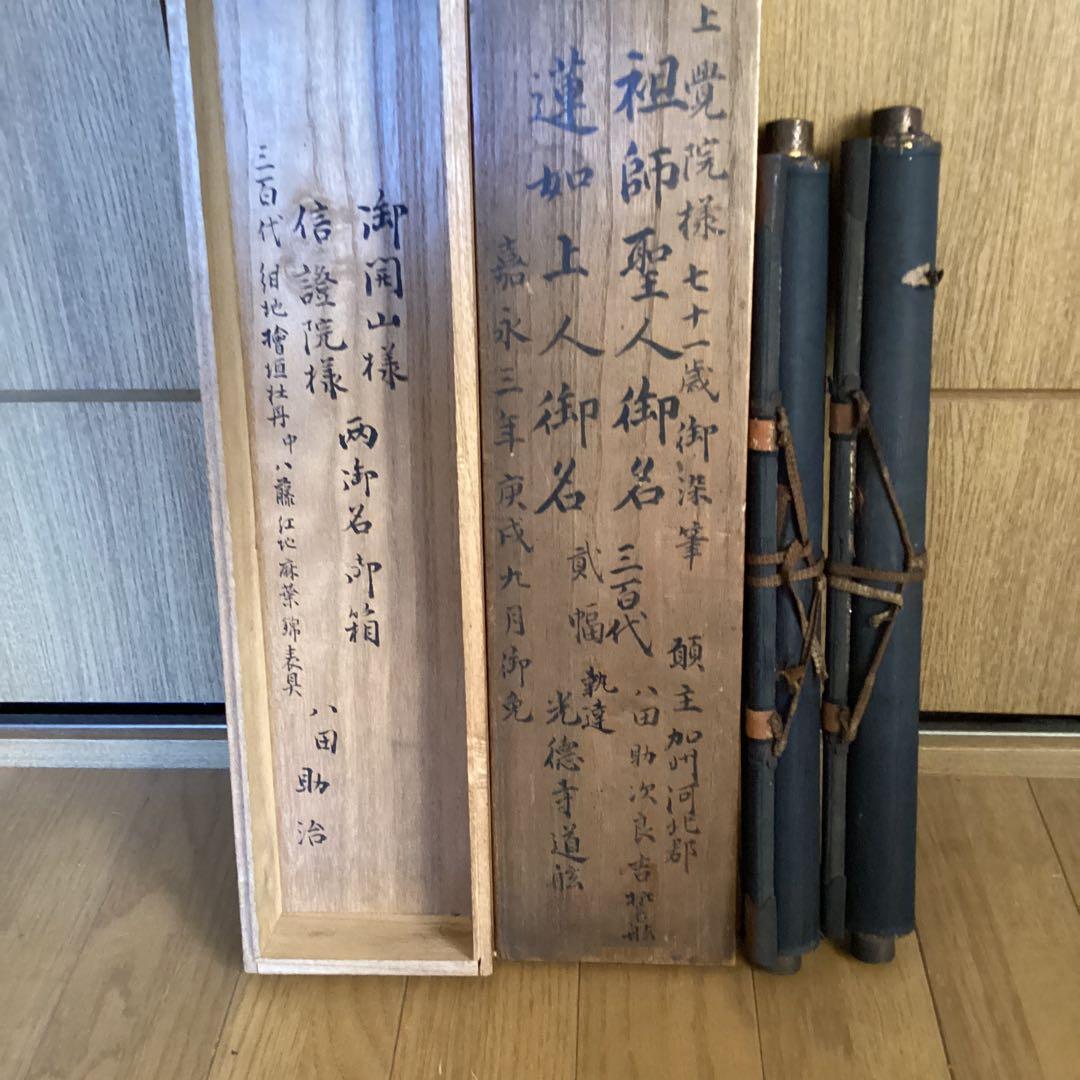 上覺院様 七十一歳御染筆 願主 加州河北郡
祖師聖人御名 三百代 八田助次良
蓮如上人御名 貳幅 執達 光德寺道
嘉永三年庚戌九月御免
御開山様
信證院様
两御名御箱
三百代 紺地檜垣牡丹 中八藤 紅地麻葉錦表具
八田助治